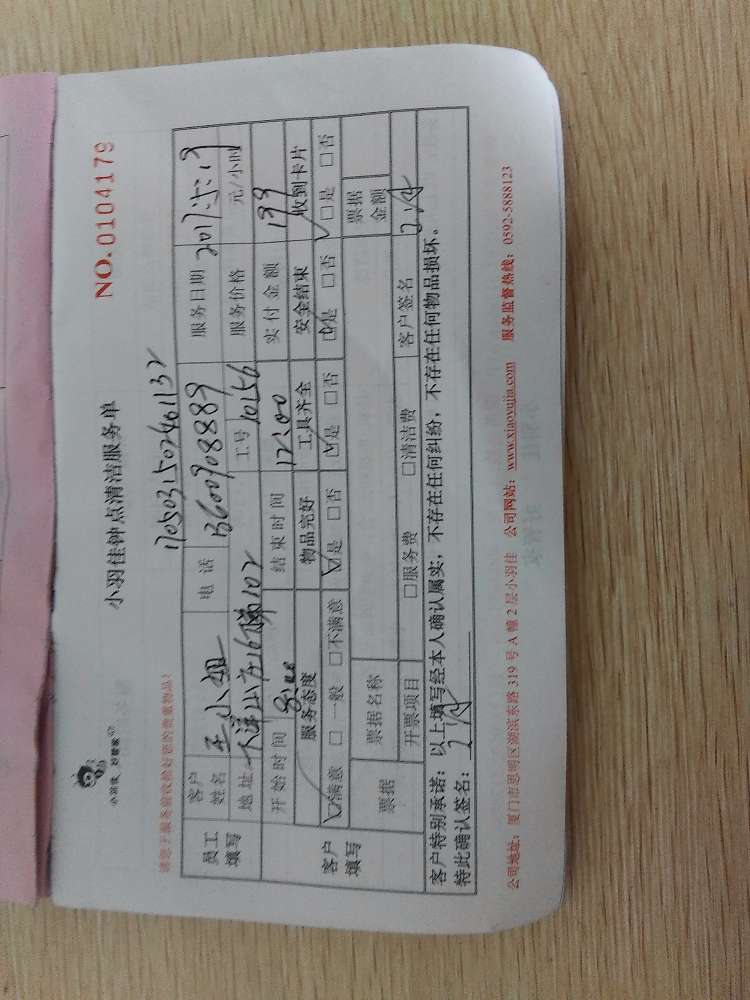 小羽佳钟点清洁服务单
NO.0104179
小羽佳 妙管家
1705031502461132
请您于服务前收拾好您的贵重物品！
员工填写 客户姓名 王小姐 电话 13600908889 服务日期
地址 工号 10156 服务价格 元/小时
开始时间 结束时间 12:00 实付金额 199
客户填写 服务态度 物品完好 工具齐全 安全结束 收到卡片
☑满意 □一般 □不满意 ☑是 □否 ☑是 □否 ☑是 □否 ☑是 □否
票据 票据名称 票据金额
开票项目 □服务费 □清洁费 客户签名
客户特别承诺：以上填写经本人确认属实，不存在任何纠纷，不存在任何物品损坏。
特此确认签名：
公司地址：厦门市思明区湖滨东路 319 号 A 幢 2 层小羽佳 公司网站：www.xiaoyujia.com 服务监督热线：0592-5888123